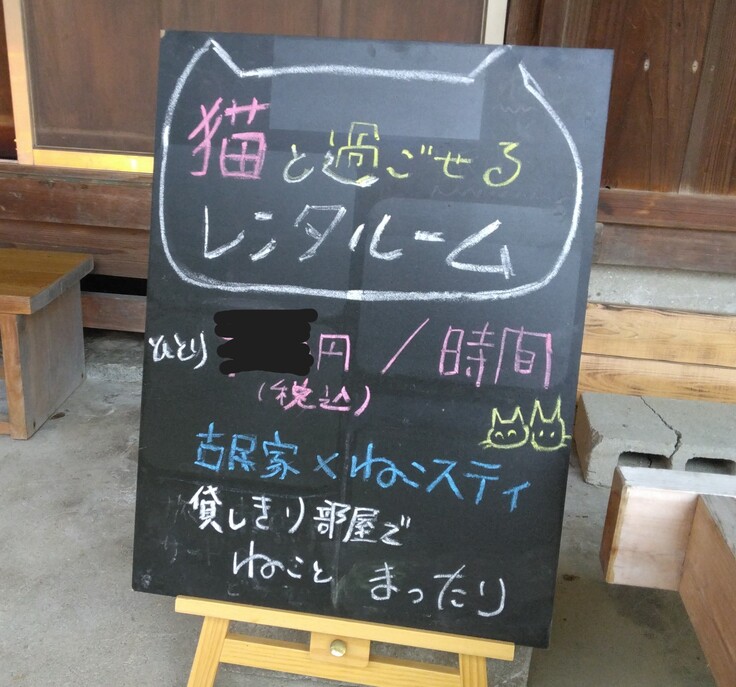 猫と過ごせる
レンタルーム
ひとり 円/時間
(税込)
古民家×ねこスティ
貸しきり部屋で
ねこと まったり